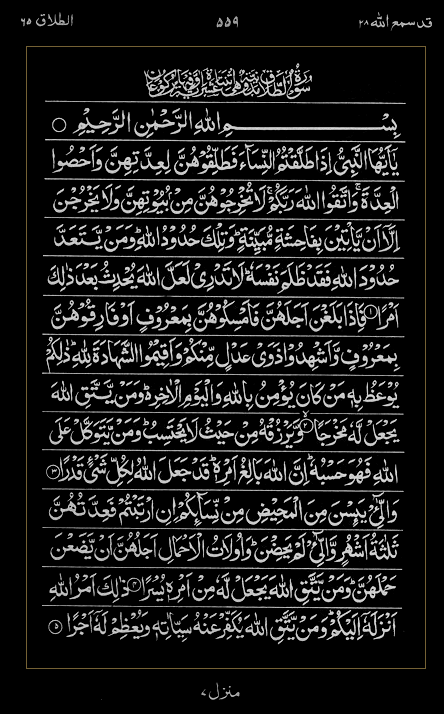 قد سمع الله ٢٨ ٥٥٩ الطلاق ٦٥
بِسْمِ اللهِ الرَّحْمٰنِ الرَّحِيْمِ
يٰٓاَيُّهَا النَّبِىُّ اِذَا طَلَّقْتُمُ النِّسَآءَ فَطَلِّقُوْهُنَّ لِعِدَّتِهِنَّ وَاَحْصُوا
الْعِدَّةَ ۚ وَاتَّقُوا اللهَ رَبَّكُمْ ۚ لَا تُخْرِجُوْهُنَّ مِنْۢ بُيُوْتِهِنَّ وَلَا يَخْرُجْنَ
اِلَّآ اَنْ يَّاْتِيْنَ بِفَاحِشَةٍ مُّبَيِّنَةٍ ؕ وَتِلْكَ حُدُوْدُ اللهِ ؕ وَمَنْ يَّتَعَدَّ
حُدُوْدَ اللهِ فَقَدْ ظَلَمَ نَفْسَهٗ ؕ لَا تَدْرِىْ لَعَلَّ اللهَ يُحْدِثُ بَعْدَ ذٰلِكَ
اَمْرًا ﴿١﴾ فَاِذَا بَلَغْنَ اَجَلَهُنَّ فَاَمْسِكُوْهُنَّ بِمَعْرُوْفٍ اَوْ فَارِقُوْهُنَّ
بِمَعْرُوْفٍ وَّاَشْهِدُوْا ذَوَىْ عَدْلٍ مِّنْكُمْ وَاَقِيْمُوا الشَّهَادَةَ لِلّٰهِ ؕ ذٰلِكُمْ
يُوْعَظُ بِهٖ مَنْ كَانَ يُؤْمِنُ بِاللهِ وَالْيَوْمِ الْاٰخِرِ ؕ وَمَنْ يَّتَّقِ اللهَ
يَجْعَلْ لَّهٗ مَخْرَجًا ﴿٢﴾ وَّيَرْزُقْهُ مِنْ حَيْثُ لَا يَحْتَسِبُ ؕ وَمَنْ يَّتَوَكَّلْ عَلَى
اللهِ فَهُوَ حَسْبُهٗ ؕ اِنَّ اللهَ بَالِغُ اَمْرِهٖ ؕ قَدْ جَعَلَ اللهُ لِكُلِّ شَىْءٍ قَدْرًا ﴿٣﴾
وَالّٰٓـىِٔ يَىِٕسْنَ مِنَ الْمَحِيْضِ مِنْ نِّسَآىِٕكُمْ اِنِ ارْتَبْتُمْ فَعِدَّتُهُنَّ
ثَلٰثَةُ اَشْهُرٍ وَّالّٰٓـىِٔ لَمْ يَحِضْنَ ؕ وَاُولَاتُ الْاَحْمَالِ اَجَلُهُنَّ اَنْ يَّضَعْنَ
حَمْلَهُنَّ ؕ وَمَنْ يَّتَّقِ اللهَ يَجْعَلْ لَّهٗ مِنْ اَمْرِهٖ يُسْرًا ﴿٤﴾ ذٰلِكَ اَمْرُ اللهِ
اَنْزَلَهٗٓ اِلَيْكُمْ ؕ وَمَنْ يَّتَّقِ اللهَ يُكَفِّرْ عَنْهُ سَيِّاٰتِهٖ وَيُعْظِمْ لَهٗٓ اَجْرًا ﴿٥﴾
منزل ٧